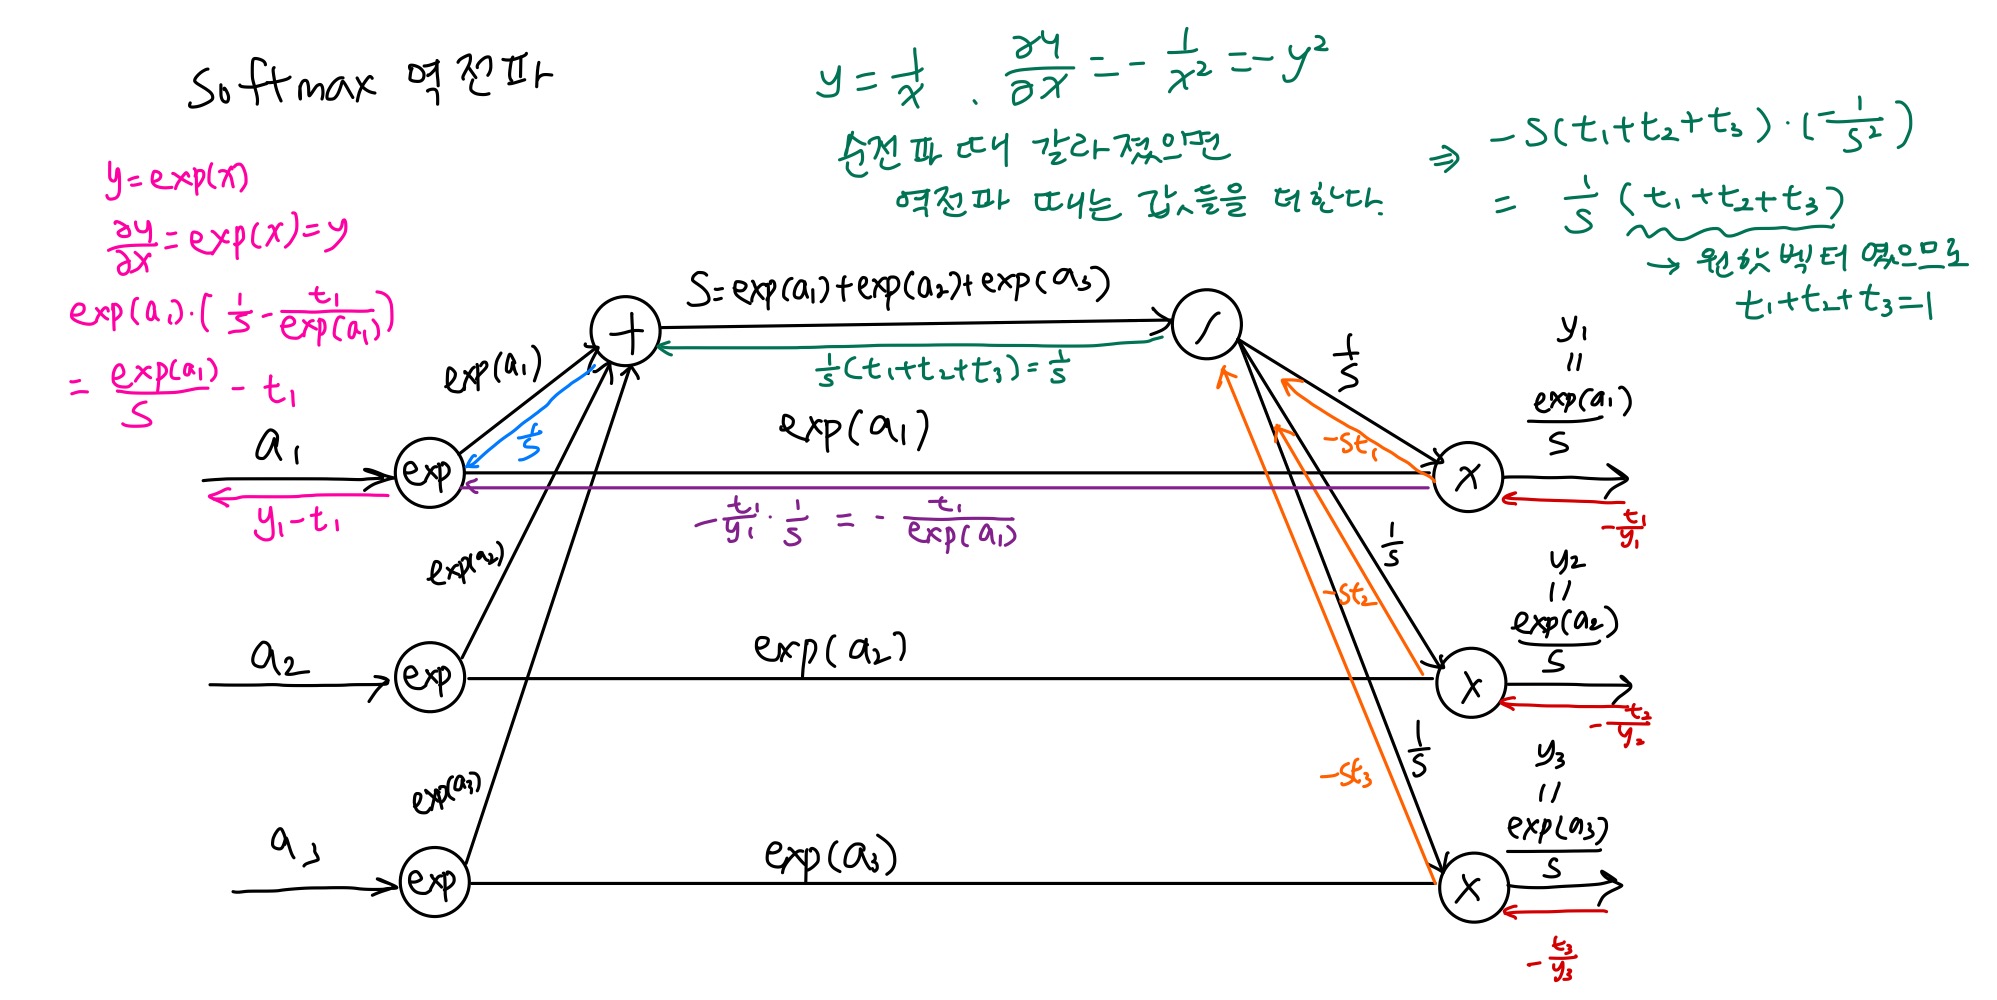 Softmax 역전파
y = 1/x . ∂y/∂x = - 1/x² = - y²
순전파 때 갈라졌으면
역전파 때는 값들을 더한다.
⇒ -S(t₁+t₂+t₃)·(-1/S²)
= 1/S (t₁+t₂+t₃)
→ 원핫 벡터 였으므로
t₁+t₂+t₃=1
y=exp(x)
∂y/∂x = exp(x) = y
exp(a₁)·(1/S - t₁/exp(a₁))
= exp(a₁)/S - t₁
S=exp(a₁)+exp(a₂)+exp(a₃)
+
/
1/S (t₁+t₂+t₃) = 1/S
exp(a₁)
1/S
1/S
-St₁
y₁
=
exp(a₁)/S
a₁
exp
exp(a₁)
×
y₁-t₁
-t₁/y₁ · 1/S = - t₁/exp(a₁)
-t₁/y₁
exp(a₂)
1/S
-St₂
y₂
=
exp(a₂)/S
a₂
exp
exp(a₂)
×
-t₂/y₂
exp(a₃)
1/S
-St₃
y₃
=
exp(a₃)/S
a₃
exp
exp(a₃)
×
-t₃/y₃